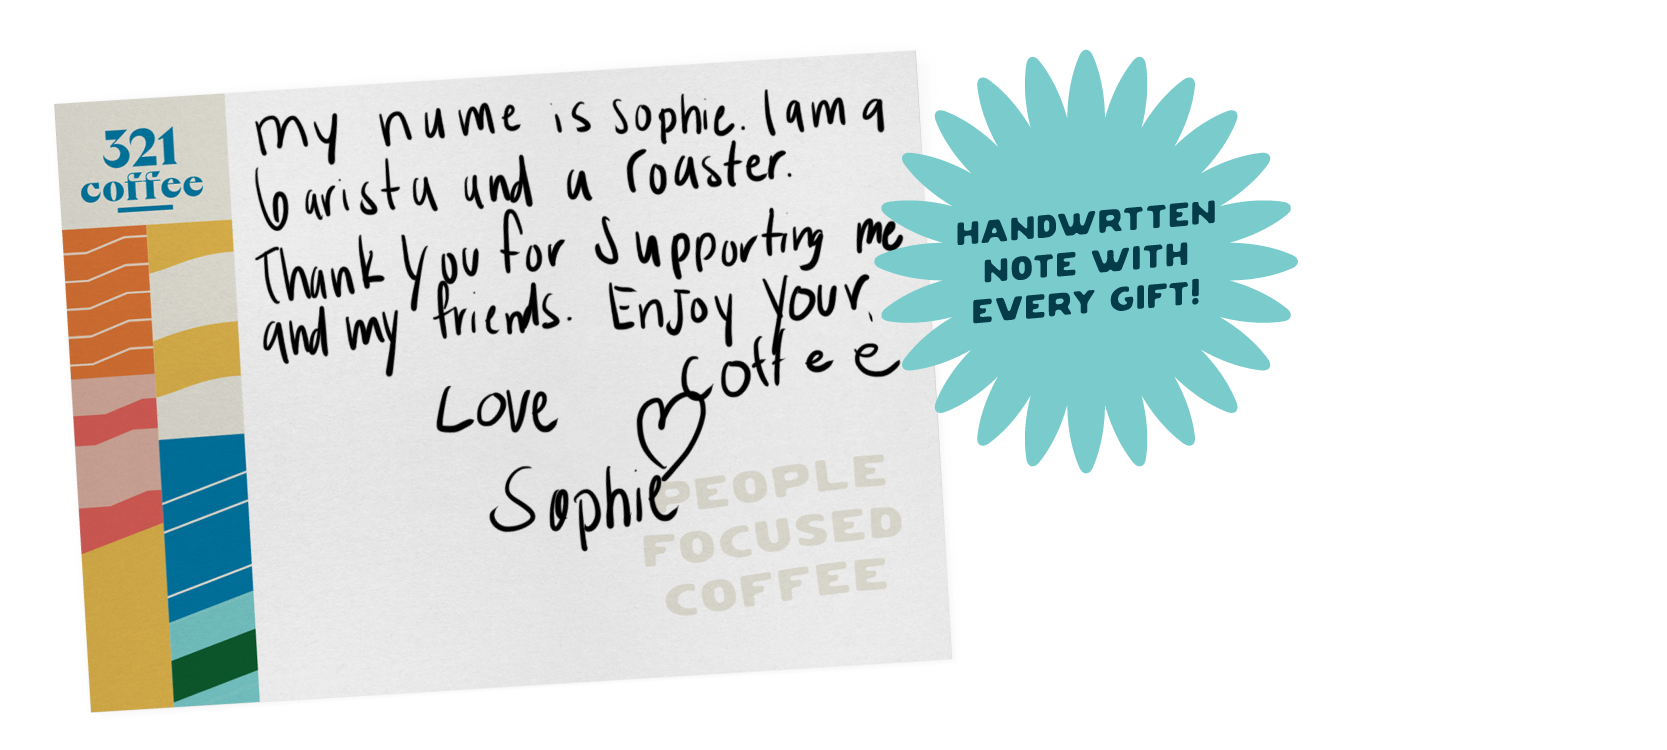 321
coffee
my nume is Sophie. I am a
barista and a roaster.
Thank you for supporting me
and my friends. Enjoy your
coffee
Love
Sophie
PEOPLE
FOCUSED
COFFEE
HANDWRTTEN
NOTE WITH
EVERY GIFT!